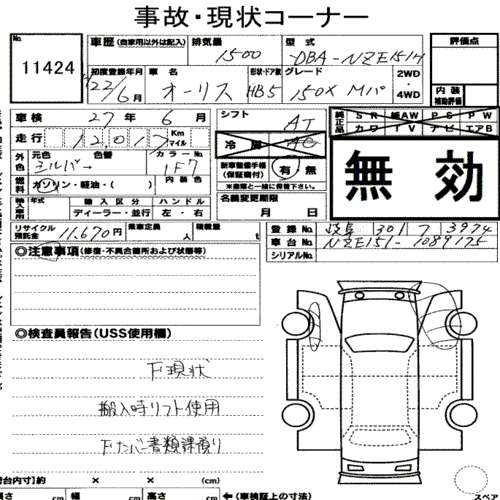 事故・現状コーナー
11424
車歴 (自家用以外は記入) 排気量 1500 型式 DBA-NZE151H 評価点
初度登録年月 22/6月 車名 オーリス 形状・ドア数 HB5 グレード 150X Mパ 2WD・4WD 内装補助評価
車検 27年6月 シフト AT 純正品 SR 純AW PS PW
カワ TV ナビ エアB
走行 12,017 Km マイル 冷房 AC
外色 元色 シルバー 色替 カラーNo 1F7 新車整備手帳(保証書付) 有・無
※書類と一緒に保管下さい。
燃料 ガソリン・軽油・( ) 内装色 名義変更期限 月 日
無効
輸入車用 年式 輸入区分 ハンドル
ディーラー・並行 左・右
リサイクル預託金 11,670円 乗車定員 人 積載量 t
登録No 岐阜 301 フ 3974
車台No NZE151-1089125
シリアルNo
◎注意事項(修復・不具合箇所および状態等)
◎検査員報告(USS使用欄)
下現状
搬入時リフト使用
Fナンバー書類課預り
荷台内寸)約 × × (cm)
長さ cm 幅 cm 高さ cm ←(車検証上の寸法) スペア